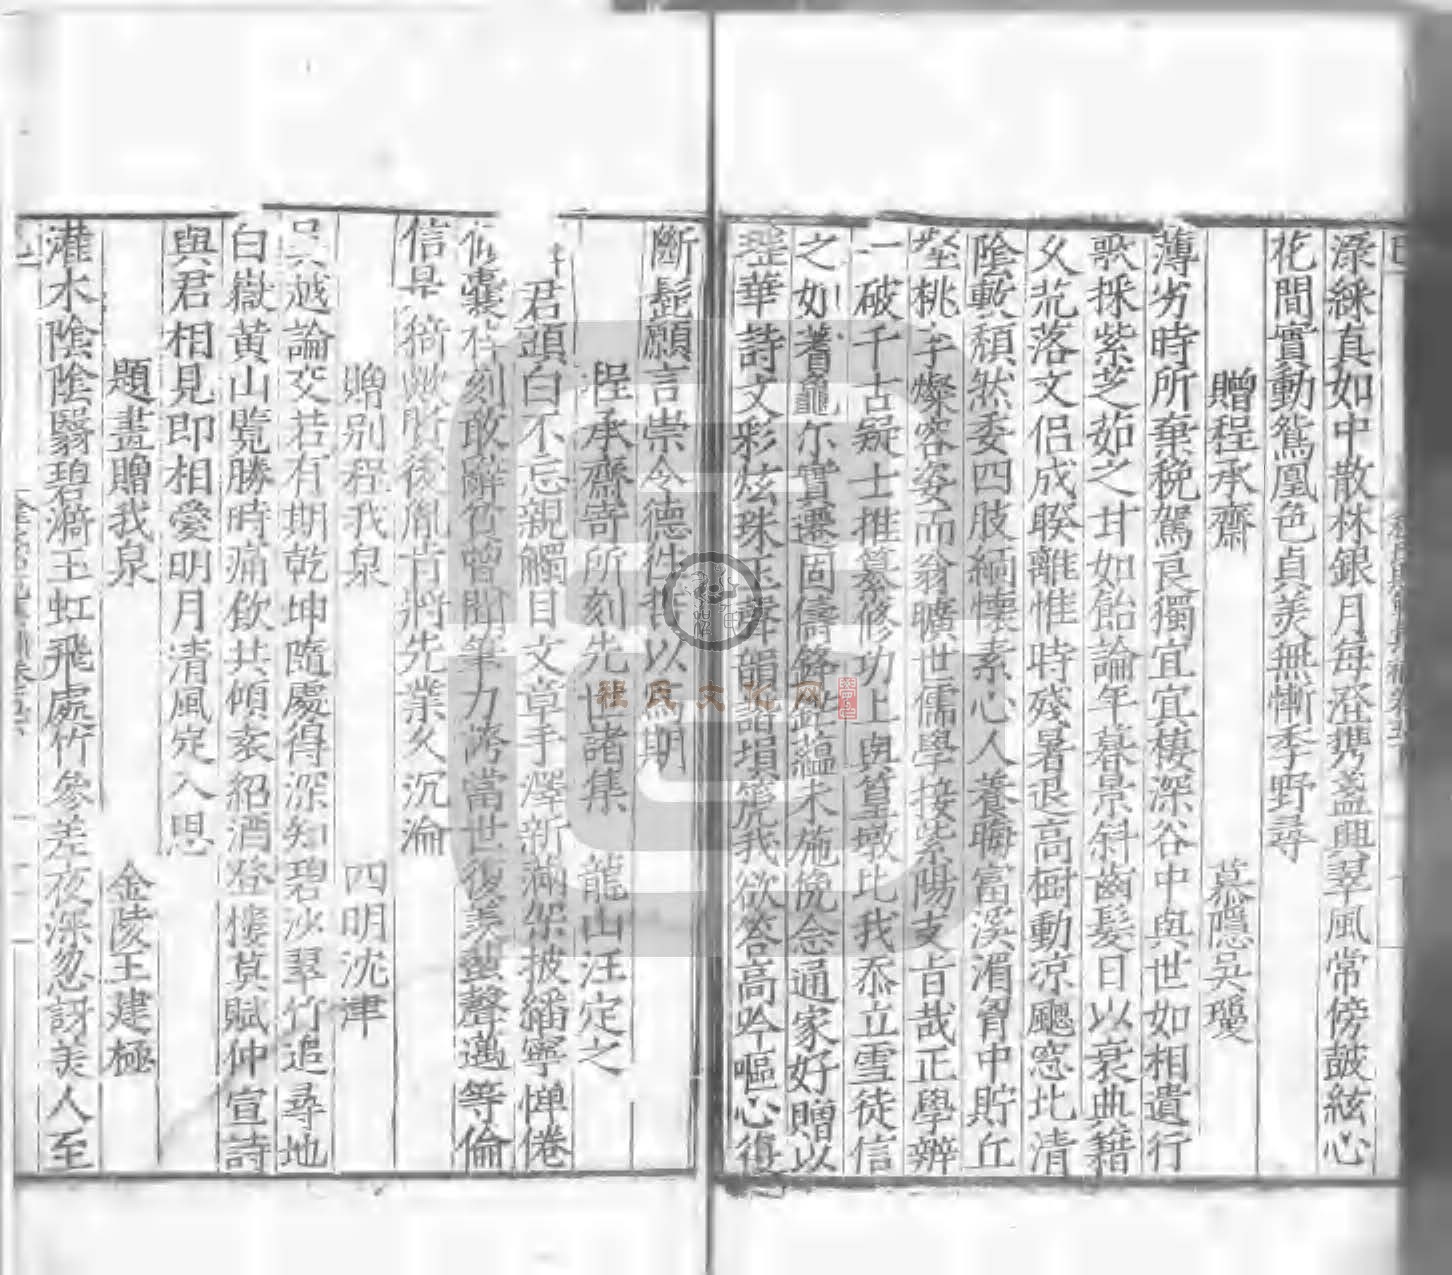 真如中散林銀月每澄携盞興翠風常傍鼓絃心
花間實動鴛凰色貞美無慚季野尋
贈程承齋 慕隱吳瓊
薄劣時所棄稅駕良獨宜宜棲深谷中與世如相遺行
歌採紫芝茹之甘如飴論年暮景斜齒髮日以衰典籍
乆荒落文侣成睽離惟時殘暑退高樹動凉颸窓北清
陰敷頽然委四肢緬懷素心人養晦富溪湄胷中貯丘
壑桃李燦容姿而翁曠世儒學接紫陽支旨哉正學辨
一破千古疑士推纂修功上與篁墩比我忝立雪徒信
之如蓍龜尓實遷固儔蘊未施俛念通家好贈以
瑶華詩文彩炫珠玉聲韻諧塤箎我欲答高吟嘔心復
斷髭願言崇令德徃哲以爲期
程承齋寄所刻先世諸集 龍山汪定之
君頭白不忘親觸目文章手澤新滿架披繙寧憚倦
囊梓刻敢辭貧曾聞筆力誇當世復羡蜚聲邁等倫
信是後胤肯將先業乆沉淪
贈别程我泉 四明沈津
吳越論交若有期乾坤隨處得深知碧沙翠竹追尋地
白嶽黄山覽勝時痛飲共傾袁紹酒登樓莫賦仲宣詩
與君相見即相愛明月清風定入思
題畫贈我泉 金陵王建極
灌木陰陰翳碧漪玉虹飛處竹參差夜深忽訝美人至
程氏文化网